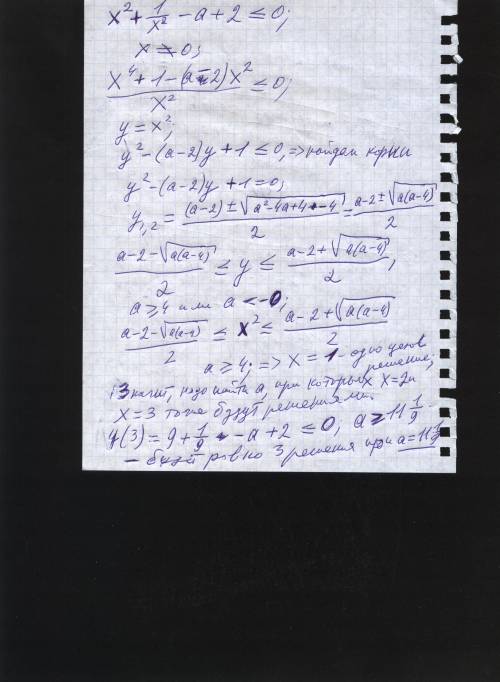 x² + 1/x² - a + 2 ≤ 0;
x ≠ 0;
(x⁴ + 1 - (a-2)x²)/x² ≤ 0;
y = x²;
y² - (a-2)y + 1 ≤ 0, => найдем корни
y² - (a-2)y + 1 = 0;
y₁,₂ = ((a-2) ± √(a²-4a+4-4))/2 = (a-2 ± √(a(a-4)))/2
(a-2-√(a(a-4)))/2 ≤ y ≤ (a-2+√(a(a-4)))/2;
a ≥ 4 или a < 0;
(a-2-√(a(a-4)))/2 ≤ x² ≤ (a-2+√(a(a-4)))/2
a ≥ 4; => x = 1 - одно целое
решение;
Значит, надо найти a при которых x=2 и
x=3 тоже будут решениями.
y(3) = 9 + 1/9 - a + 2 ≤ 0, a ≥ 11 1/9
- будет ровно 3 решения при a = 11 1/9